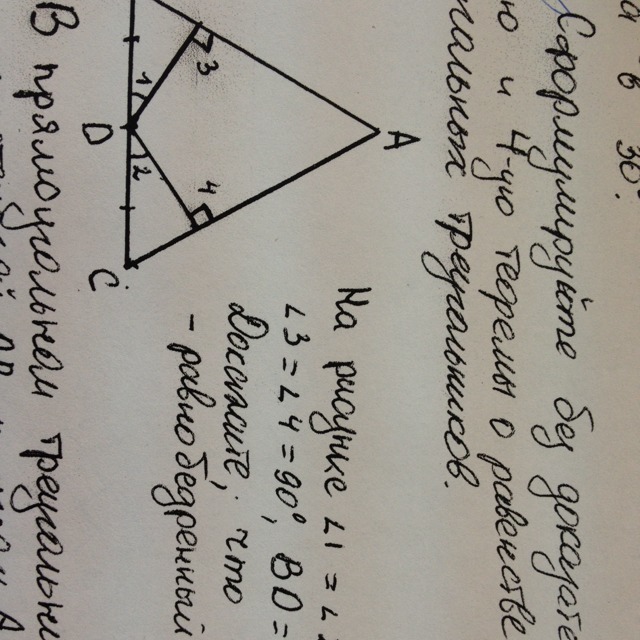 в 30°.
Сформулируйте без доказате
ю и 4-ую теоремы о равенстве
треугольников.
A
3
4
1
2
D
C
На рисунке ∠1 = ∠
∠3 = ∠4 = 90°, BD =
Докажите, что
- равнобедренный
В прямоугольном треугольни